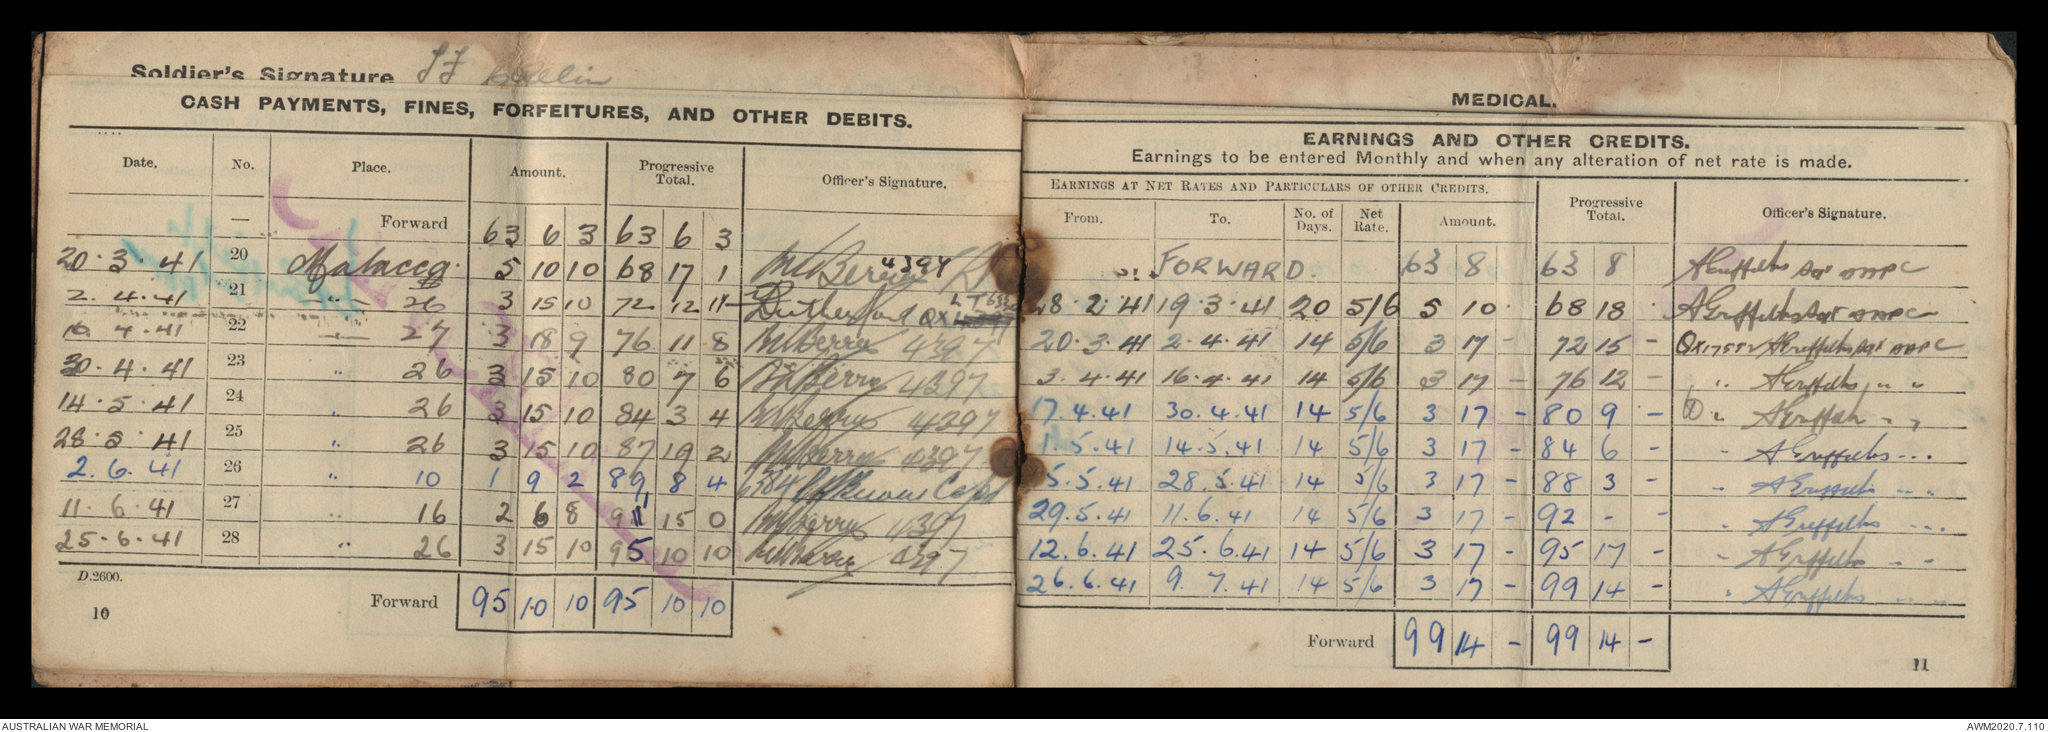 Soldier's Signature
CASH PAYMENTS, FINES, FORFEITURES, AND OTHER DEBITS.
Date. No. Place. Amount. Progressive Total. Officer's Signature.
— Forward 63 6 3 63 6 3
20.3.41 20 Malacca 5 10 10 68 17 1 4397
2.4.41 21 " 26 3 15 10 72 12 11 Rutherford QX
16.4.41 22 " 27 3 18 9 76 11 8 Berry 4397
30.4.41 23 " 26 3 15 10 80 7 6 Berry 4397
14.5.41 24 " 26 3 15 10 84 3 4 Berry 4397
28.5.41 25 " 26 3 15 10 87 19 2 Berry 4397
2.6.41 26 " 10 1 9 2 89 8 4 Capt
11.6.41 27 " 16 2 6 8 91 15 0 Berry 4397
25.6.41 28 " 26 3 15 10 95 10 10 Berry 4397
D.2600.
Forward 95 10 10 95 10 10
10
MEDICAL.
EARNINGS AND OTHER CREDITS.
Earnings to be entered Monthly and when any alteration of net rate is made.
EARNINGS AT NET RATES AND PARTICULARS OF OTHER CREDITS. Progressive Total. Officer's Signature.
From. To. No. of Days. Net Rate. Amount.
FORWARD. 63 8 63 8 A Griffiths Sgt AAPC
28.2.41 19.3.41 20 5/6 5 10 68 18 A Griffiths Sgt AAPC
20.3.41 2.4.41 14 5/6 3 17 - 72 15 - A Griffiths Sgt AAPC
3.4.41 16.4.41 14 5/6 3 17 - 76 12 - " A Griffiths " "
17.4.41 30.4.41 14 5/6 3 17 - 80 9 - " A Griffiths " "
1.5.41 14.5.41 14 5/6 3 17 - 84 6 - " A Griffiths " "
15.5.41 28.5.41 14 5/6 3 17 - 88 3 - " A Griffiths " "
29.5.41 11.6.41 14 5/6 3 17 - 92 - - " A Griffiths " "
12.6.41 25.6.41 14 5/6 3 17 - 95 17 - " A Griffiths " "
26.6.41 9.7.41 14 5/6 3 17 - 99 14 - " A Griffiths " "
Forward 99 14 - 99 14 -
11
AUSTRALIAN WAR MEMORIAL
AWM2020.7.110